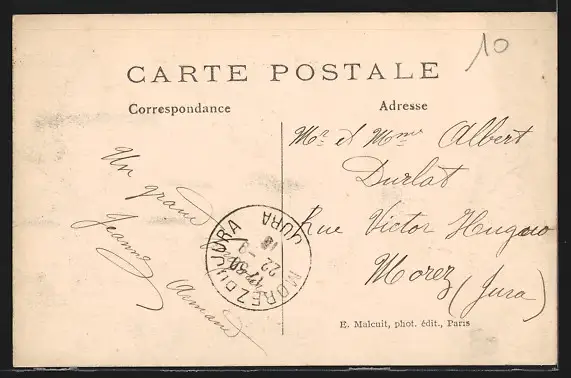 10
CARTE POSTALE
Correspondance
Adresse
Mr et Mme Albert
Durlat
Rue Victor Huguo
Morez
(Jura)
Un grand
Jeanne
Armand
MOREZ DU JURA
17 30
22 - 9
JURA
E. Malcuit, phot. édit., Paris